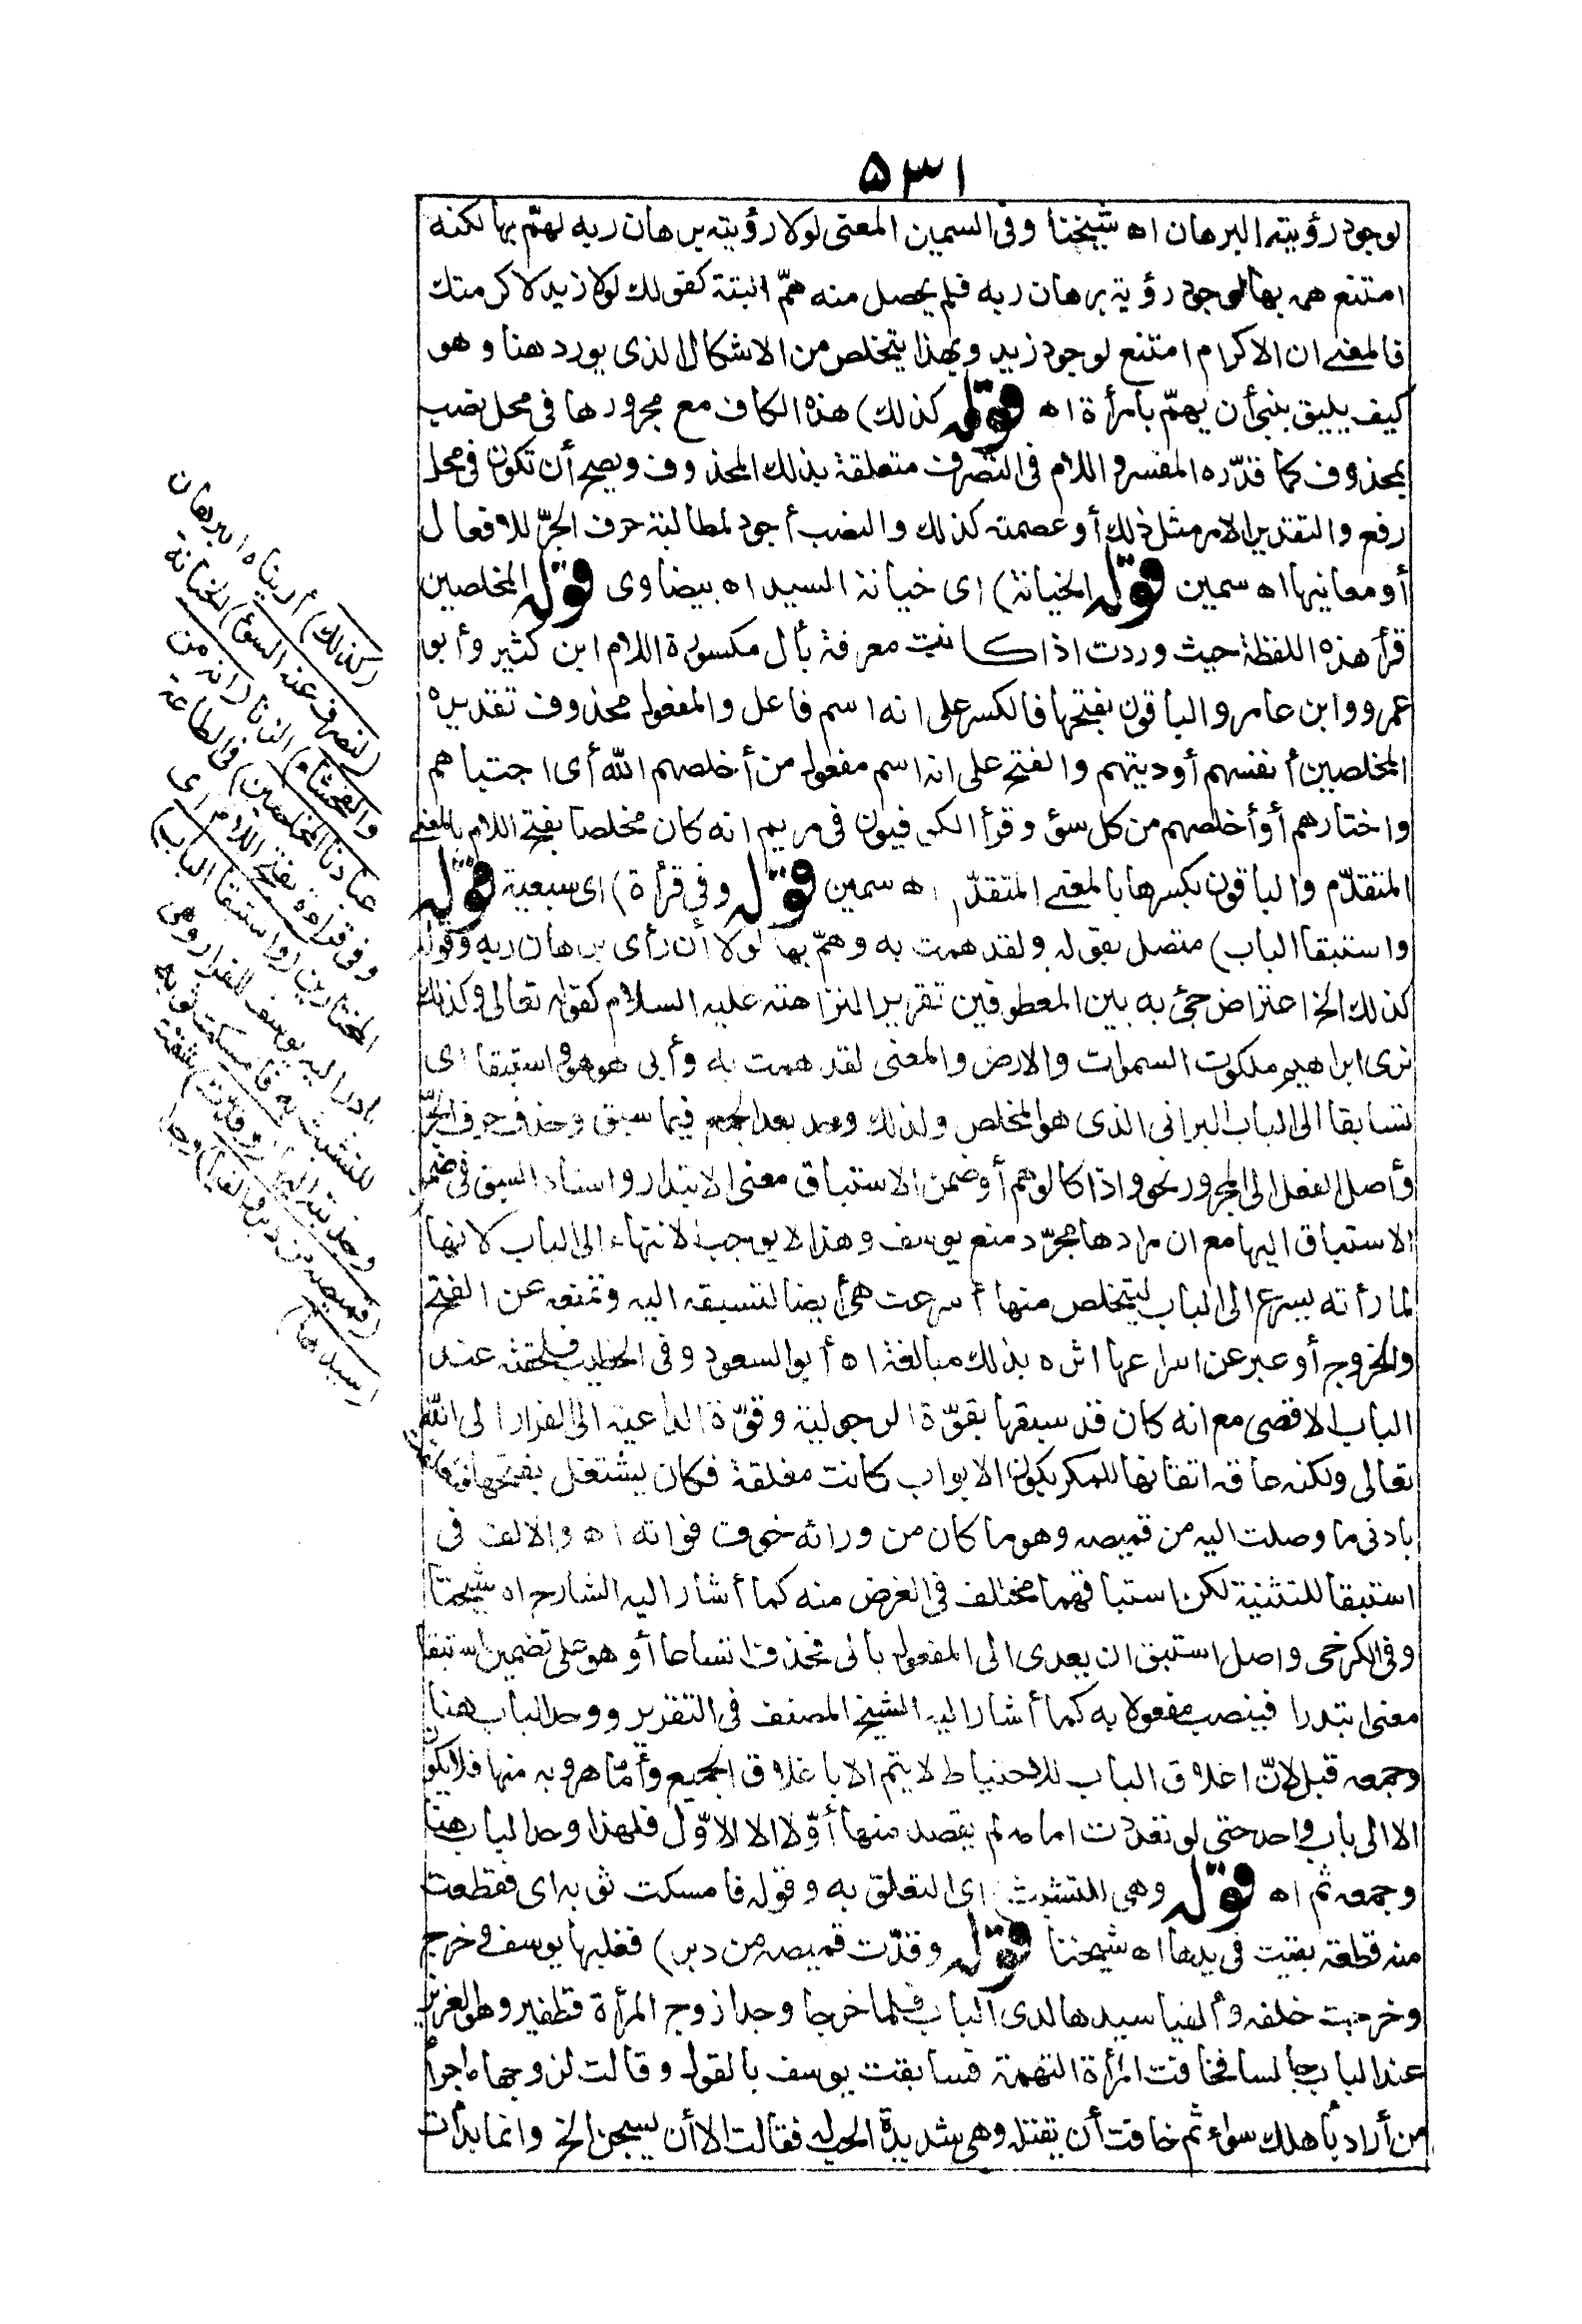 ٥٣١
لوجود رؤيته البرهان اه شيخنا وفى السمين المعنى لولا رؤيته برهان ربه لهمّ بها لكنه
امتنع همه بها لوجود رؤية برهان ربه فلم يحصل منه همّ البتة كقولك لولا زيد لاكرمتك
فالمعنى ان الاكرام امتنع لوجود زيد وبهذا يتخلص من الاشكال الذى يورد هنا وهو
كيف يليق بنبى أن يهمّ بامرأة اه قوله كذلك) هذه الكاف مع مجرورها فى محل نصب
بمحذوف كما قدّره المفسر واللام فى لنصرف متعلقة بذلك المحذوف ويصح أن تكون فى محل
رفع والتقدير الامر مثل ذلك أو عصمته كذلك والنصب أجود لمطالبة حرف الجرّ للافعال
أو معانيها اه سمين قوله الخيانة) اى خيانة السيد اه بيضاوى قوله المخلصين
قرأ هذه اللفظة حيث وردت اذا كانت معرفة بأل مكسورة اللام ابن كثير وأبو
عمرو وابن عامر والباقون بفتحها فالكسر على انه اسم فاعل والمفعول محذوف تقديره
المخلصين أنفسهم أو دينهم والفتح على انه اسم مفعول من أخلصهم الله أى اجتباهم
واختارهم أو أخلصهم من كل سؤ وقرأ الكوفيون فى مريم انه كان مخلصا بفتح اللام بالمعنى
المتقدّم والباقون بكسرها بالمعنى المتقدّم اه سمين قوله وفى قرأة) اى سبعية قوله
واستبقا الباب) متصل بقوله ولقد همت به وهمّ بها لولا أن رأى برهان ربه وقوله
كذلك الخ اعتراض جئ به بين المعطوفين تقريرا لنزاهته عليه السلام كقوله تعالى وكذلك
نرى ابراهيم ملكوت السموات والارض والمعنى لقد همت به وأبى هو واستبقا اى
تسابقا الى الباب البرانى الذى هو المخلص ولذلك وحد بعد الجمع فيما سبق وحذف حرف الجرّ
وأصل الفعل الى المجرور نحو واذا كالوهم أو ضمن الاستباق معنى الابتدار واسناد السبق فى ضمن
الاستباق اليها مع ان مرادها مجرّد منع يوسف وهذا لا يوجب الانتهاء الى الباب لانها
لما رأته يسرع الى الباب ليتخلص منها أسرعت هى أيضا لتسبقه اليه وتمنعه عن الفتح
والخروج أو عبر عن اسراعها اثره بذلك مبالغة اه أبو السعود وفى الخطيب فلحقته عند
الباب الاقصى مع انه كان قد سبقها بقوّة الرجولية وقوّة الداعية الى الفرار الى الله
تعالى ولكنه عاقه اتقانها للمكر بكون الابواب كانت مغلقة فكان يشتغل بفتحها فتعلقت
بادنى ما وصلت اليه من قميصه وهو ما كان من ورائه خوف فواته اه والالف فى
استبقا للتثنية لكن استباقهما مختلف فى الغرض منه كما أشار اليه الشارح اه شيخنا
وفى الكرخى واصل استبق ان يعدى الى المفعول بالى فحذف اتساعا أو هو على تضمين استبقا
معنى ابتدرا فينصب مفعولا به كما أشار اليه الشيخ المصنف فى التقرير ووحد الباب هنا
وجمعه قبل لانّ اغلاق الباب للاحتياط لا يتم الا باغلاق الجميع وأمّا هروبه منها فلا يكون
الا الى باب واحد حتى لو تعدّدت امامه لم يقصد منها أوّلا الا الاوّل فلهذا وحد الباب هنا
وجمعه ثم اه قوله وهى للتشبث) اى التعلق به وقوله فامسكت ثوبه اى فقطعت
منه قطعة بقيت فى يدها اه شيخنا قوله وقدّت قميصه من دبر) فغلبها يوسف وخرج
وخرجت خلفه وألفيا سيدها لدى الباب فلما خرجا وجدا زوج المرأة قطفير وهو العزيز
عند الباب جالسا فخافت المرأة التهمة فسابقت يوسف بالقول وقالت لزوجها ما جزا
من أراد بأهلك سوء ثم خافت أن يقتله وهى شديدة الحب له فقالت الا أن يسجن الخ وانما بدأت
(كذلك) أريناه البرهان
(لنصرف عنه السؤ) الخيانة
والفحشاء) الزنا (انه من
عبادنا المخلصين) فى الطاعة
وفى قراءة بفتح اللام اى
المختارين (واستبقا الباب)
بادرا اليه يوسف للفرار وهى
للتشبث به فامسكت ثوبه
وجذبته اليها (وقدّت) شقت
(قميصه من دبر وألفيا) وجدا
(سيدها)